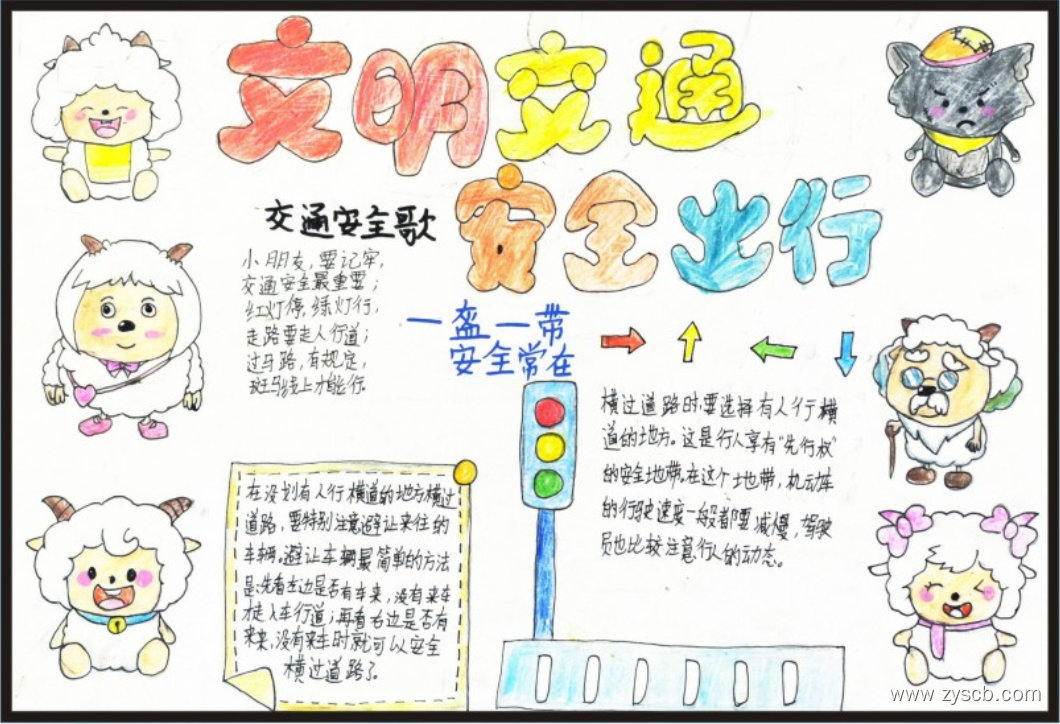 文明交通
安全出行
交通安全歌
小朋友，要记牢，
交通安全最重要；
红灯停，绿灯行，
走路要走人行道；
过马路，有规定，
斑马线上才能行。
一盔一带
安全常在
横过道路时要选择有人行横
道的地方。这是行人享有“先行权”
的安全地带。在这个土地带，机动车
的行驶速度一般都要减慢，驾驶
员也比较注意行人的动态。
在没划有人行横道的地方横过
道路，要特别注意避让来往的
车辆。避让车辆最简单的方法
是：先看左边是否有车来，没有来车
才走入车行道；再看右边是否有
来来，没有来车时就可以安全
横过道路了。
www.zyscb.com